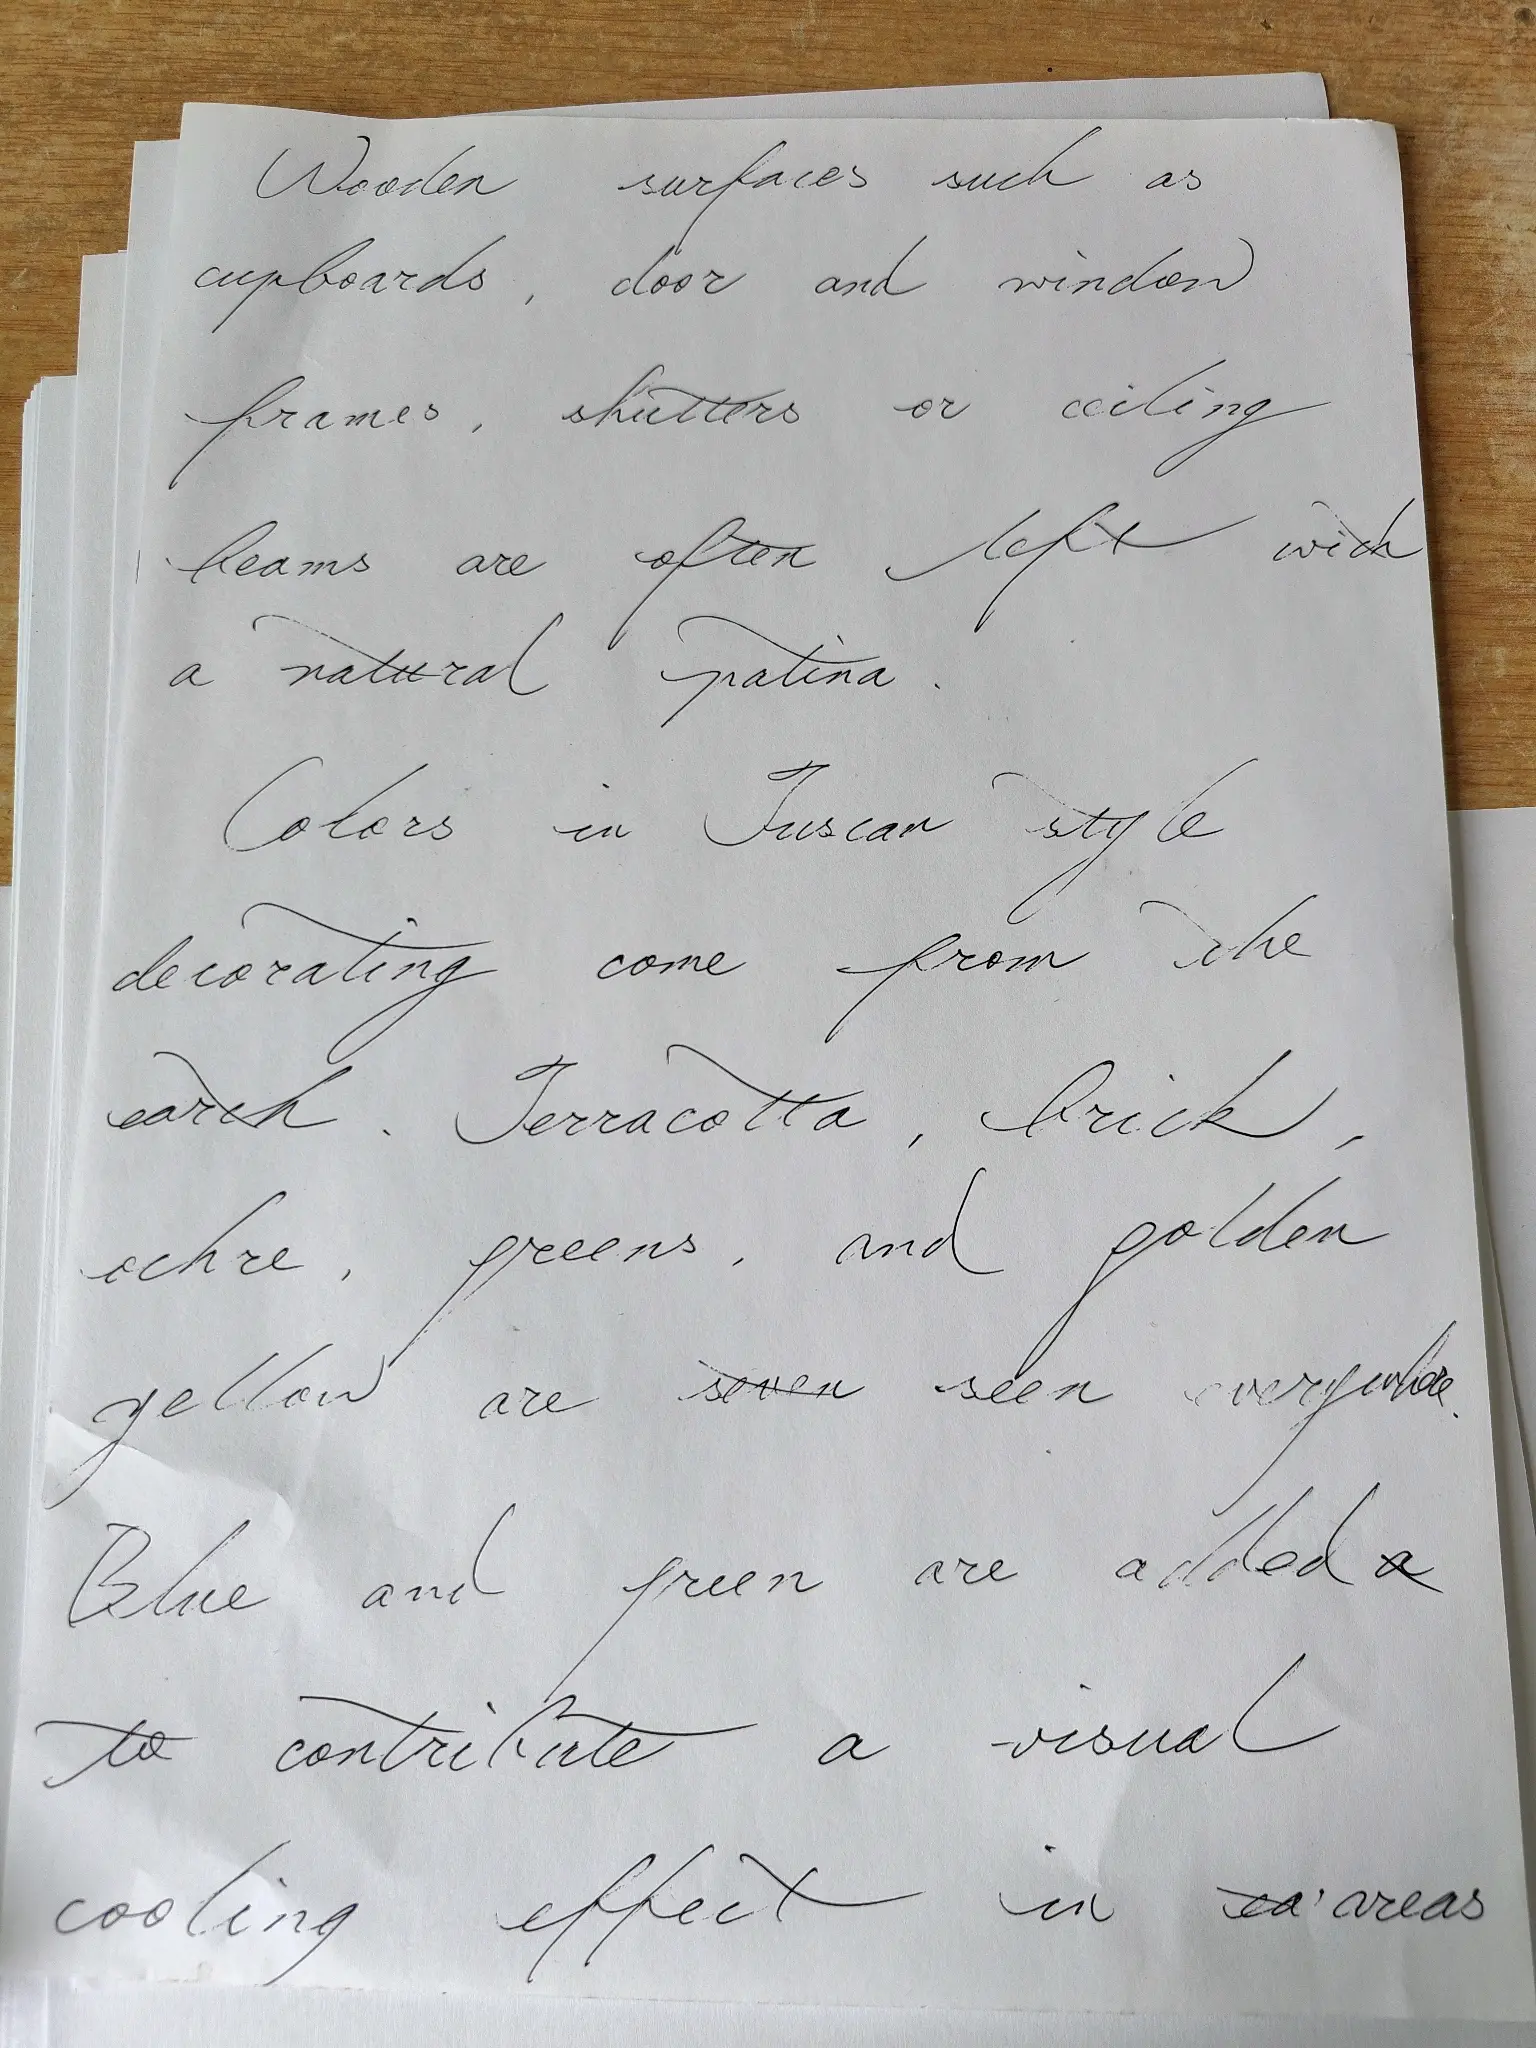 Wooden surfaces such as
cupboards, door and window
frames, shutters or ceiling
beams are often left with
a natural patina.
Colors in Tuscan style
decorating come from the
earth. Terracotta, brick,
ochre, greens, and golden
yellow are seven seen everywhere.
Blue and green are added a
to contribute a visual
cooling effect in ea areas